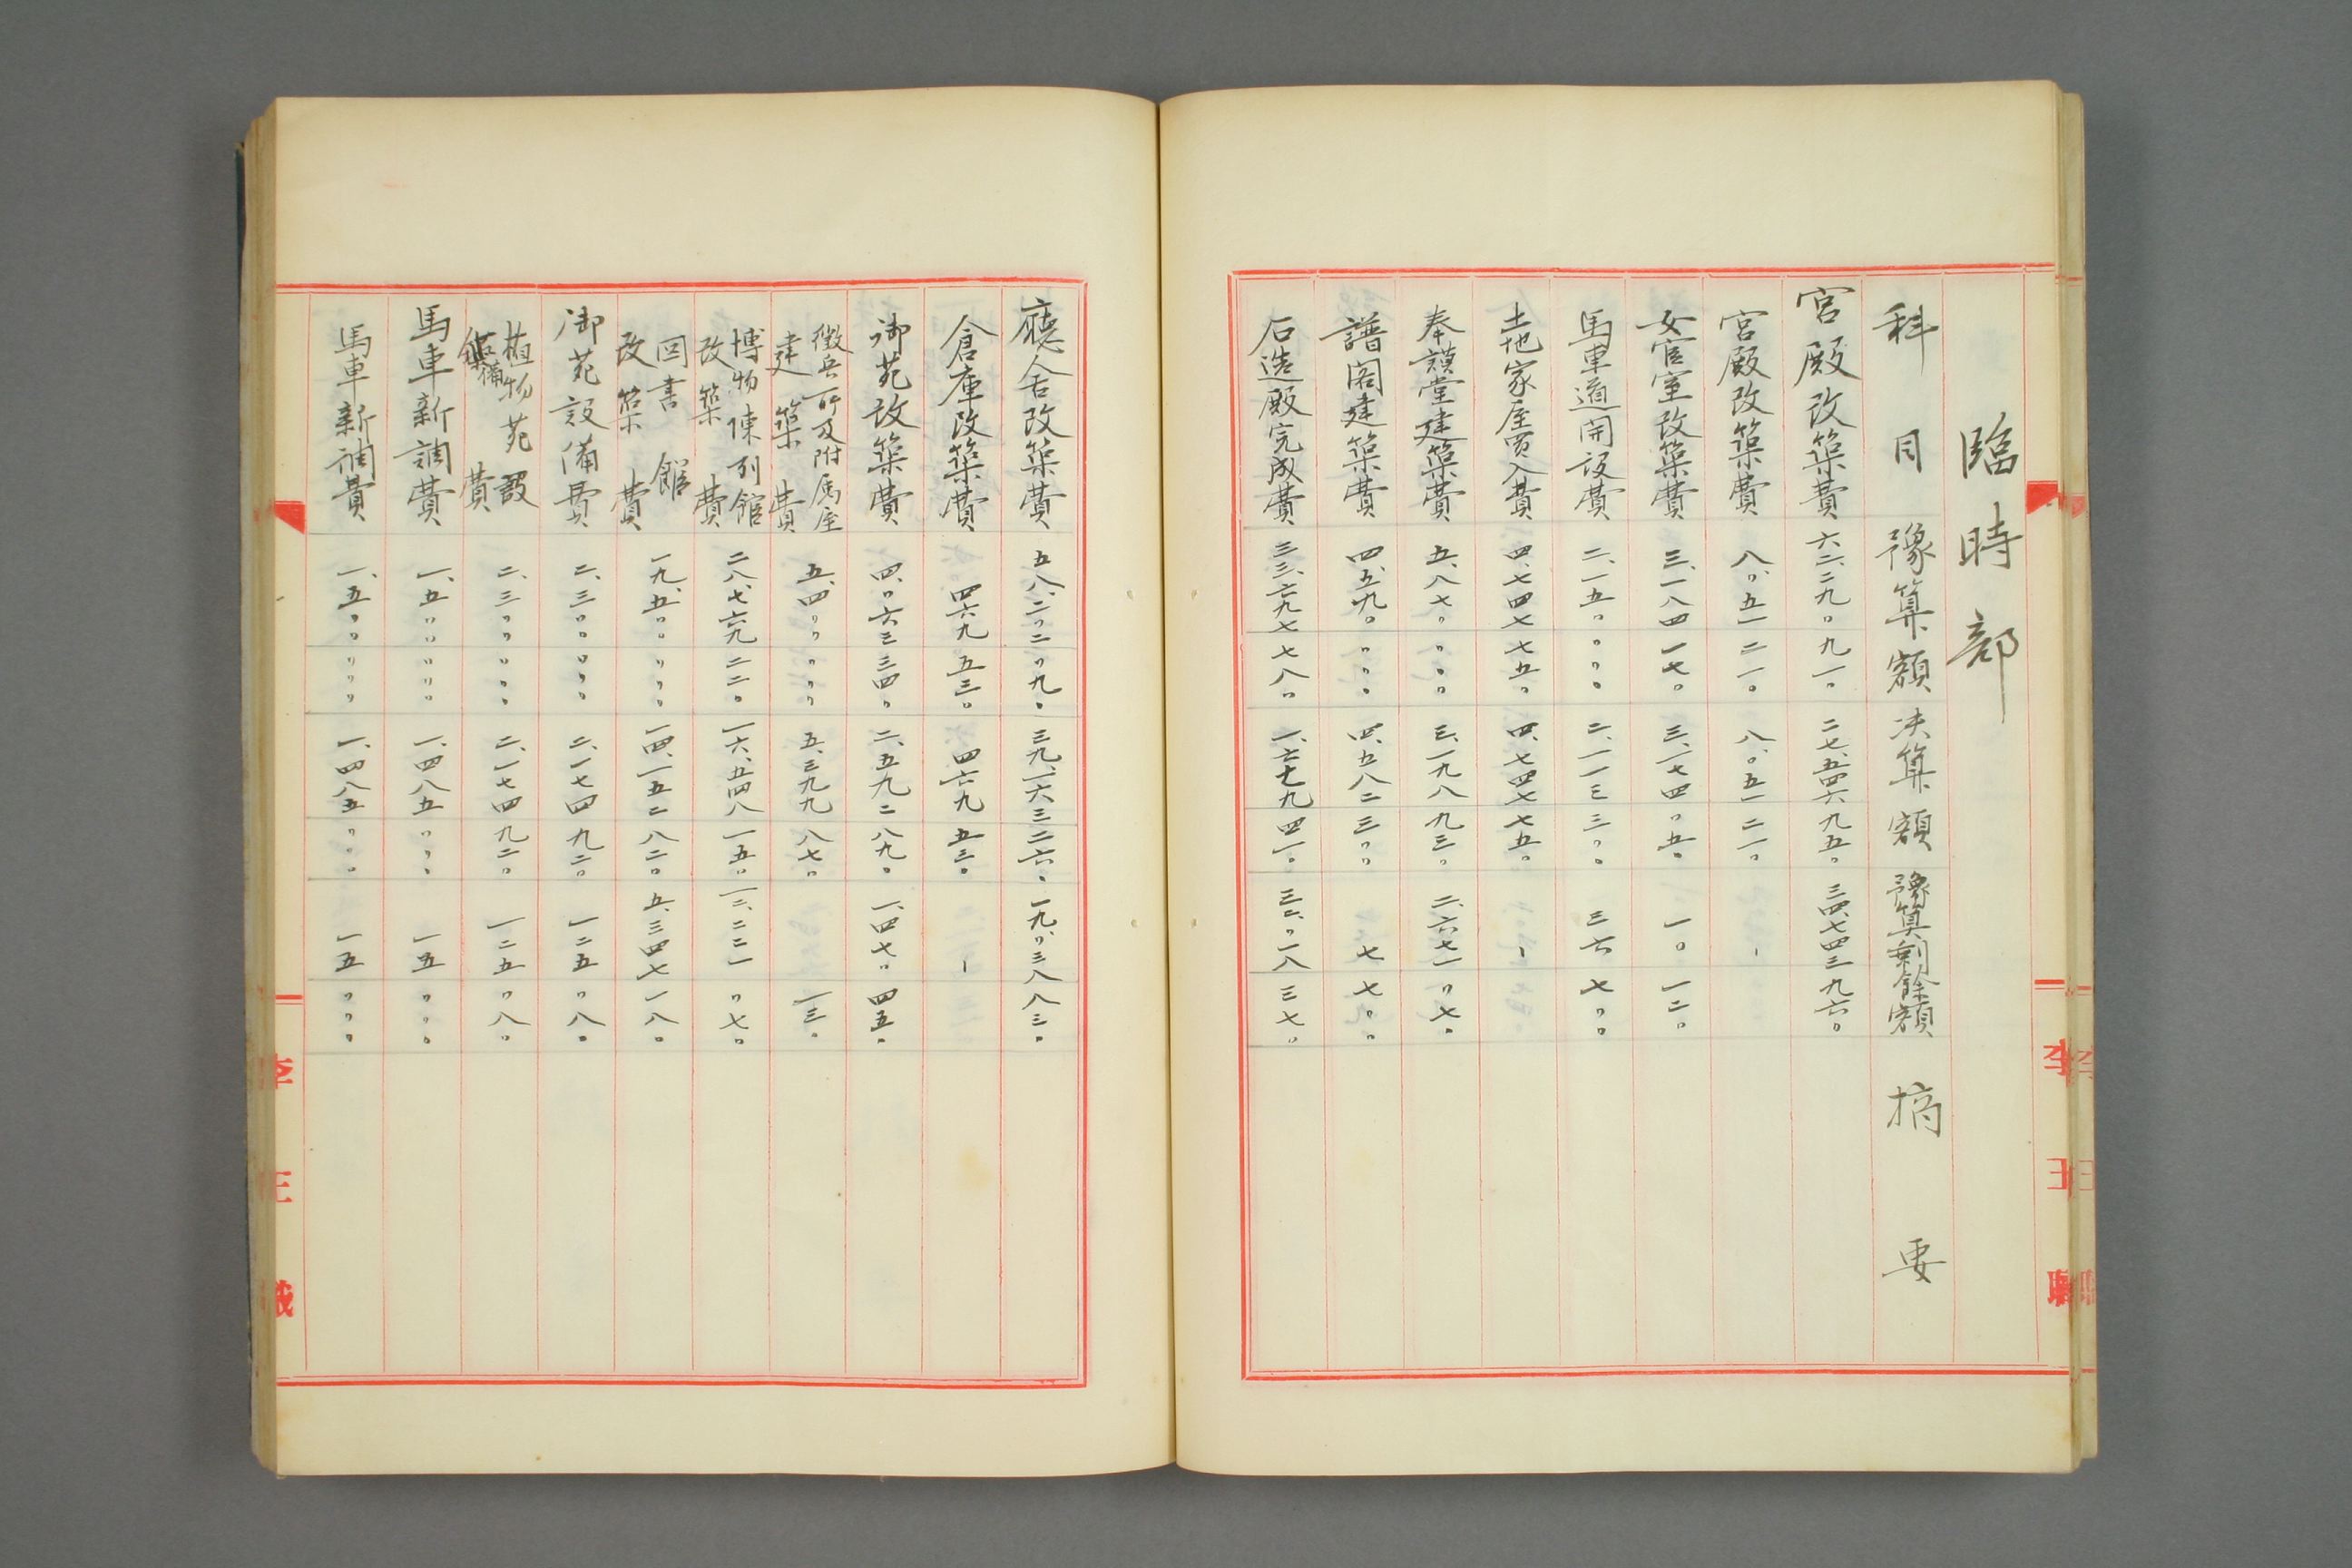 臨時部
科目 豫算額 決算額 豫算剰餘額 摘要
宮殿改築費 六二、二九〇 九一〇 二七、五四六 九五〇 三四、七四三 九六〇
宮殿改築費 八、〇五一 二一〇 八、〇五一 二一〇 -
女官室改築費 三、一八四 一七〇 三、一七四 〇五〇 一〇 一二〇
馬車道開設費 二、一五〇 〇〇〇 二、一一三 三〇〇 三六 七〇〇
土地家屋買入費 四、七四七 七五〇 四、七四七 七五〇 -
奉謨堂建築費 五、八七〇 〇〇〇 三、一九八 九三〇 二、六七一 〇七〇
譜閣建築費 四、五九〇 〇〇〇 四、五八二 三〇〇 七 七〇〇
石造殿完成費 三三、六九七 七八〇 一、六七九 四一〇 三二、〇一八 三七〇
李王職
廳舍改築費 五八、二〇二 〇九〇 三九、一六三 二六〇 一九、〇三八 八三〇
倉庫改築費 四六九 五三〇 四六九 五三〇 -
御苑改築費 四、〇六三 三四〇 二、五九二 八九〇 一、四七〇 四五〇
徴兵所及附属屋
建築費 五、四〇〇 〇〇〇 五、三九九 八七〇 一三〇
博物陳列館
改築費 二八、七六九 二二〇 一六、五四八 一五〇 一二、二二一 〇七〇
図書館
改築費 一九、五〇〇 〇〇〇 一四、一五二 八二〇 五、三四七 一八〇
御苑設備費 二、三〇〇 〇〇〇 二、一七四 九二〇 一二五 〇八〇
植物苑設
備費 二、三〇〇 〇〇〇 二、一七四 九二〇 一二五 〇八〇
馬車新調費 一、五〇〇 〇〇〇 一、四八五 〇〇〇 一五 〇〇〇
馬車新調費 一、五〇〇 〇〇〇 一、四八五 〇〇〇 一五 〇〇〇
李王職